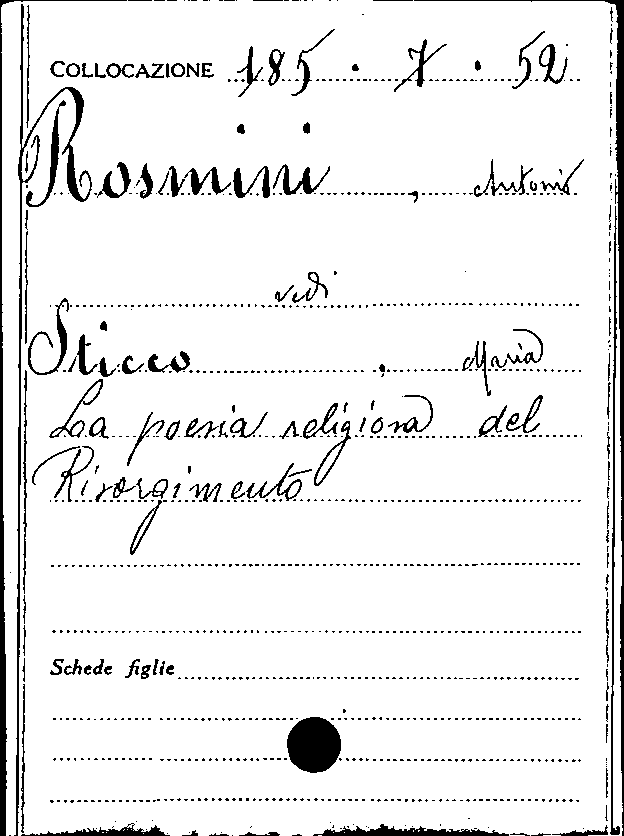 COLLOCAZIONE 185 . 7 . 52
Rosmini , Antonio
vedi
Sticco , Maria
La poesia religiosa del
Risorgimento
Schede figlie